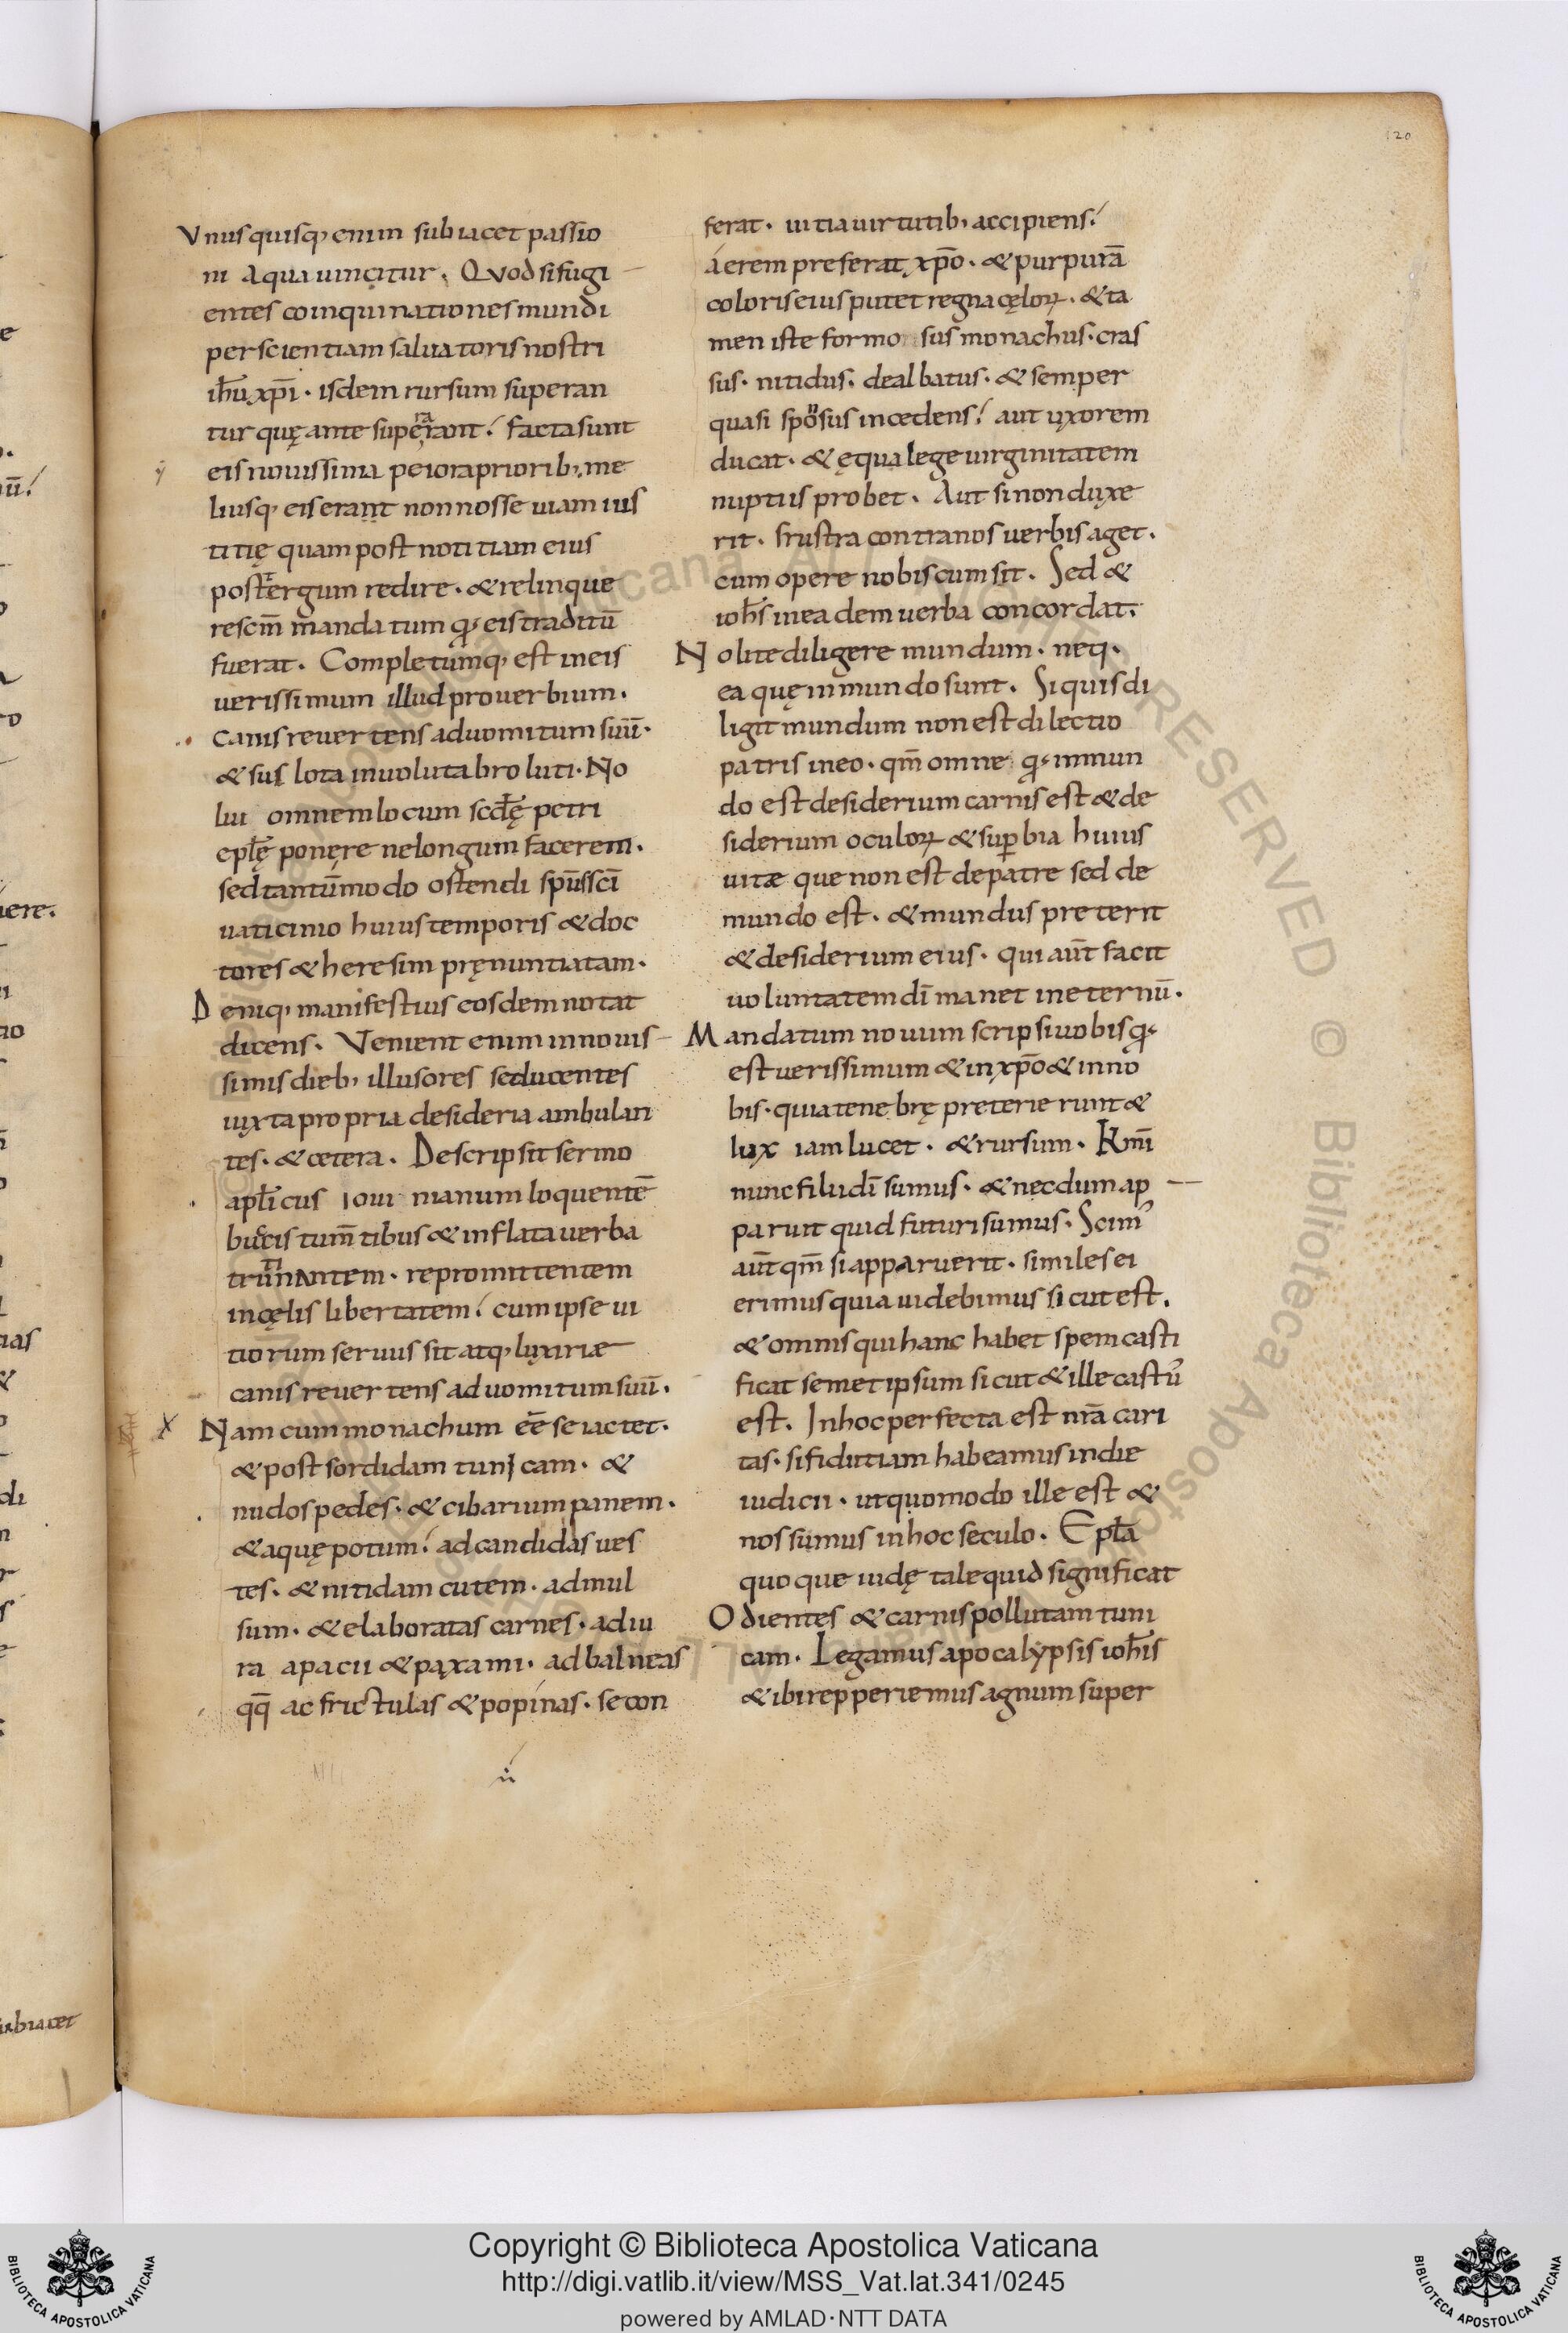 120
Vnusquisq; enim subiacet passio
ni a qua uincitur. Quod si fugi
entes coinquinationes mundi
per scientiam saluatoris nostri
ihū xp̄i. isdem rursum superan
tur quę ante superant; facta sunt
eis nouissima peiora priorib; me
liusq; eis erant non nosse uiam ius
titię quam post notitiam eius
post tergum redire. & relinque
re sc̄m mandatum qđ eis traditū
fuerat. Completumq; est in eis
uerissimum illud prouerbium.
canis reuertens ad uomitum suū.
& sus lota in uolutabro luti. No
lui omnem locum scđę petri
eplę ponere ne longum facerem.
sed tantūmodo ostendi sp̄us sc̄i
uaticinio huius temporis & doc
tores & heresim pręnuntiatam.
Deniq; manifestius eosdem notat
dicens. Venient enim in nouis
simis dieb; illusores seducentes
iuxta propria desideria ambulan
tes. & cetera. Descripsit sermo
apl̄icus iouinianum loquentē
buccis tum̄tibus & inflata uerba
trutinantem. repromittentem
in cęlis libertatem; cum ipse ui
tiorum seruus sit atq; luxiriæ
canis reuertens ad uomitum suū.
Nam cum monachum eē se iactet.
& post sordidam tunicam. &
nudos pedes. & cibarium panem.
& aquę potum; ad candidas ues
tes. & nitidam cutem. ad mul
sum. & elaboratas carnes. ad iu
ra apacii & paxami. ad balneas
qq̄ ac frictulas & popinas. se con
ferat. uitia uirtutib; accipiens;
aerem preferat xp̄o. & purpurā
coloris eius putet regna cęloꝝ. & ta
men iste formosus monachus. cras
sus. nitidus. dealbatus. & semper
quasi sponsus incedens; aut uxorem
ducat. & ęqua lege uirginitatem
nuptiis probet. Aut si non duxe
rit. frustra contra nos uerbis aget.
cum opere nobiscum sit. Sed &
ioh̄s in eadem uerba concordat.
Nolite diligere mundum. neq.
ea quę in mundo sunt. Si quis di
ligit mundum non est dilectio
patris in eo. qm̄ omne qđ in mun
do est desiderium carnis est & de
siderium oculoꝝ & sup̱bia huius
uitæ que non est de patre sed de
mundo est. & mundus preterit
& desiderium eius. qui aūt facit
uoluntatem dī manet in eternū.
Mandatum nouum scripsi uobis qđ
est uerissimum & in xp̄o & in no
bis. quia tenebrę preterierunt &
lux iam lucet. & rursum. Kmī
nunc filii dī sumus. & necdum ap
paruit quid futuri sumus. Scim᾿
aūt qm̄ si apparuerit. similes ei
erimus quia uidebimus sicut est.
& omnis qui hanc habet spem casti
ficat semetipsum sicut & ille castus
est. In hoc perfecta est nr̄a cari
tas. si fidutiam habeamus in die
iudicii. ut quomodo ille est &
nos sumus in hoc seculo. Epl̄a
quoque iudę tale quid significat
Odientes & carnis pollutam tuni
cam. Legamus apocalypsis ioh̄is
& ibi repperiemus agnum super
Copyright © Biblioteca Apostolica Vaticana
http://digi.vatlib.it/view/MSS_Vat.lat.341/0245
powered by AMLAD·NTT DATA